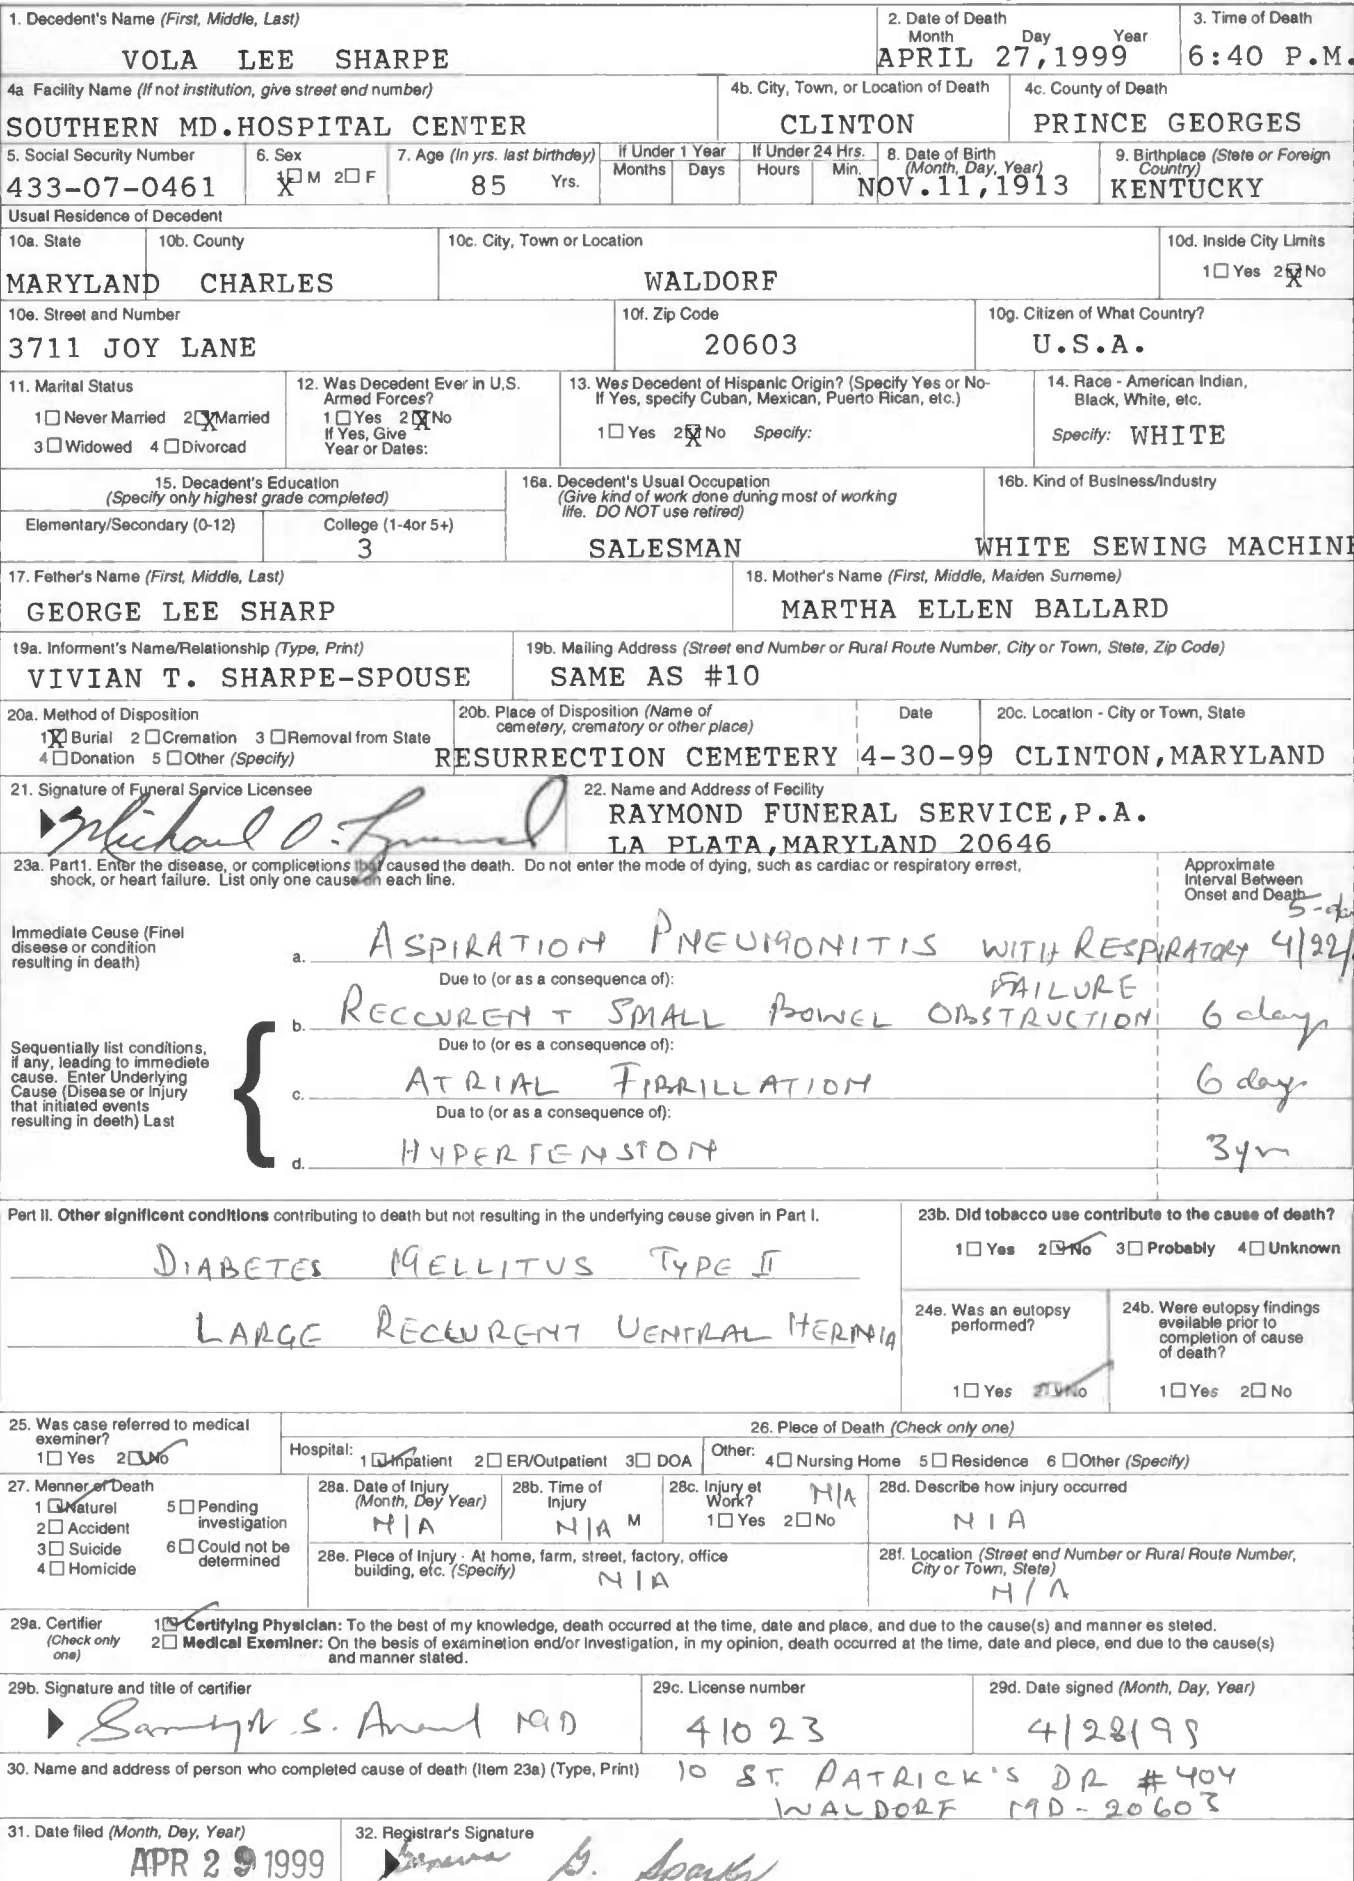 1. Decedent's Name (First, Middle, Last)
VOLA LEE SHARPE
2. Date of Death
Month Day Year
APRIL 27,1999
3. Time of Death
6:40 P.M.
4a Facility Name (If not institution, give street end number)
SOUTHERN MD.HOSPITAL CENTER
4b. City, Town, or Location of Death
CLINTON
4c. County of Death
PRINCE GEORGES
5. Social Security Number
433-07-0461
6. Sex
1☒ M 2☐ F
7. Age (In yrs. last birthdey)
85 Yrs.
If Under 1 Year
Months Days
If Under 24 Hrs.
Hours Min.
8. Date of Birth
(Month, Day, Year)
NOV.11,1913
9. Birthplace (Stete or Foreign
Country)
KENTUCKY
Usual Residence of Decedent
10a. State
MARYLAND
10b. County
CHARLES
10c. City, Town or Location
WALDORF
10d. Inside City Limits
1☐ Yes 2☒ No
10e. Street and Number
3711 JOY LANE
10f. Zip Code
20603
10g. Citizen of What Country?
U.S.A.
11. Marital Status
1☐ Never Married 2☒ Married
3☐ Widowed 4☐ Divorcad
12. Was Decedent Ever in U.S.
Armed Forces?
1☐ Yes 2☒ No
If Yes, Give
Year or Dates:
13. Wes Decedent of Hispanic Origin? (Specify Yes or No-
If Yes, specify Cuban, Mexican, Puerto Rican, etc.)
1☐ Yes 2☒ No Specify:
14. Race - American Indian,
Black, White, etc.
Specify: WHITE
15. Decadent's Education
(Specify only highest grade completed)
Elementary/Secondary (0-12)
College (1-4or 5+)
3
16a. Decedent's Usual Occupation
(Give kind of work done during most of working
life. DO NOT use retired)
SALESMAN
16b. Kind of Business/Industry
WHITE SEWING MACHINE
17. Father's Name (First, Middle, Last)
GEORGE LEE SHARP
18. Mother's Name (First, Middle, Maiden Surneme)
MARTHA ELLEN BALLARD
19a. Informent's Name/Relationship (Type, Print)
VIVIAN T. SHARPE-SPOUSE
19b. Mailing Address (Street end Number or Rural Route Number, City or Town, Stete, Zip Code)
SAME AS #10
20a. Method of Disposition
1☒ Burial 2 ☐ Cremation 3 ☐ Removal from State
4 ☐ Donation 5 ☐ Other (Specify)
20b. Place of Disposition (Name of
cemetery, crematory or other place)
RESURRECTION CEMETERY
Date
4-30-99
20c. Location - City or Town, State
CLINTON,MARYLAND
21. Signature of Funeral Service Licensee
Michael O.
22. Name and Address of Fecility
RAYMOND FUNERAL SERVICE,P.A.
LA PLATA,MARYLAND 20646
23a. Part1. Enter the disease, or complications that caused the death. Do not enter the mode of dying, such as cardiac or respiratory errest,
shock, or heart failure. List only one cause on each line.
Approximate
Interval Between
Onset and Death
Immediate Ceuse (Finel
diseese or condition
resulting in death)
a. ASPIRATION PNEUMONITIS WITH RESPIRATORY 4/22/
FAILURE
Due to (or as a consequenca of):
b. RECCURENT SMALL BOWEL OBSTRUCTION 6 days
Sequentially list conditions,
if any, leading to immediete
cause. Enter Underlying
Cause (Disease or Injury
that initiated events
resulting in deeth) Last
Due to (or es a consequence of):
c. ATRIAL FIBRILLATION 6 days
Dua to (or as a consequence of):
d. HYPERTENSION 3yrs
Pert II. Other significent conditions contributing to death but not resulting in the underfying ceuse given in Part I.
DIABETES MELLITUS TYPE II
LARGE RECCURENT VENTRAL HERNIA
23b. Did tobacco use contribute to the cause of death?
1☐ Yes 2☑ No 3☐ Probably 4☐ Unknown
24e. Was an eutopsy
performed?
1☐ Yes 2☑ No
24b. Were eutopsy findings
eveilable prior to
completion of cause
of death?
1☐ Yes 2☐ No
25. Was case referred to medical
exeminer?
1☐ Yes 2☑ No
26. Plece of Death (Check only one)
Hospital: 1☑ Inpatient 2☐ ER/Outpatient 3☐ DOA
Other: 4☐ Nursing Home 5☐ Residence 6 ☐ Other (Specify)
27. Menner of Death
1 ☑ Naturel 5☐ Pending
investigation
2☐ Accident
3☐ Suicide 6☐ Could not be
determined
4☐ Homicide
28a. Date of Injury
(Month, Dey Year)
N/A
28b. Time of
Injury
N/A M
28c. Injury et
Work? N/A
1☐ Yes 2☐ No
28d. Describe how injury occurred
N/A
28e. Plece of Injury - At home, farm, street, factory, office
building, etc. (Specify)
N/A
28f. Location (Street end Number or Rural Route Number,
City or Town, Stete)
N/A
29a. Certifier
(Check only
one)
1☑ Certifying Physician: To the best of my knowledge, death occurred at the time, date and place, and due to the cause(s) and manner es steted.
2☐ Medical Exeminer: On the besis of examinetion end/or Investigation, in my opinion, death occurred at the time, date and plece, end due to the cause(s)
and manner stated.
29b. Signature and title of certifier
S. Anand MD
29c. License number
41023
29d. Date signed (Month, Day, Year)
4/28/99
30. Name and address of person who completed cause of death (Item 23a) (Type, Print)
10 ST. PATRICK'S DR #404
WALDORF MD-20603
31. Date filed (Month, Dey, Year)
APR 29 1999
32. Registrar's Signature
Geneva G. Sparks